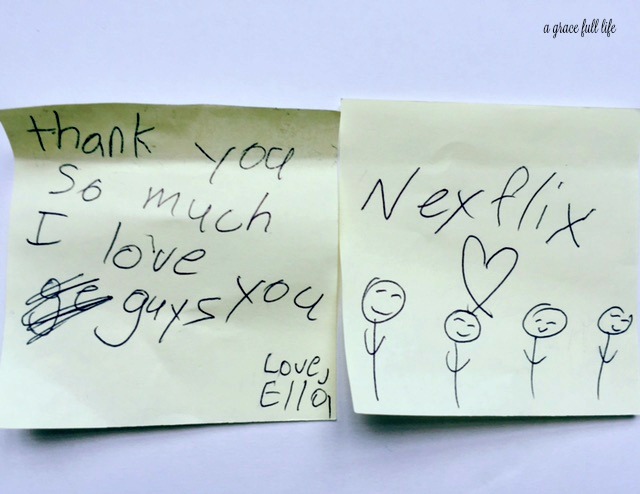 a grace full life
thank you
so much
I love
guys you
Love,
Ella
Nexflix